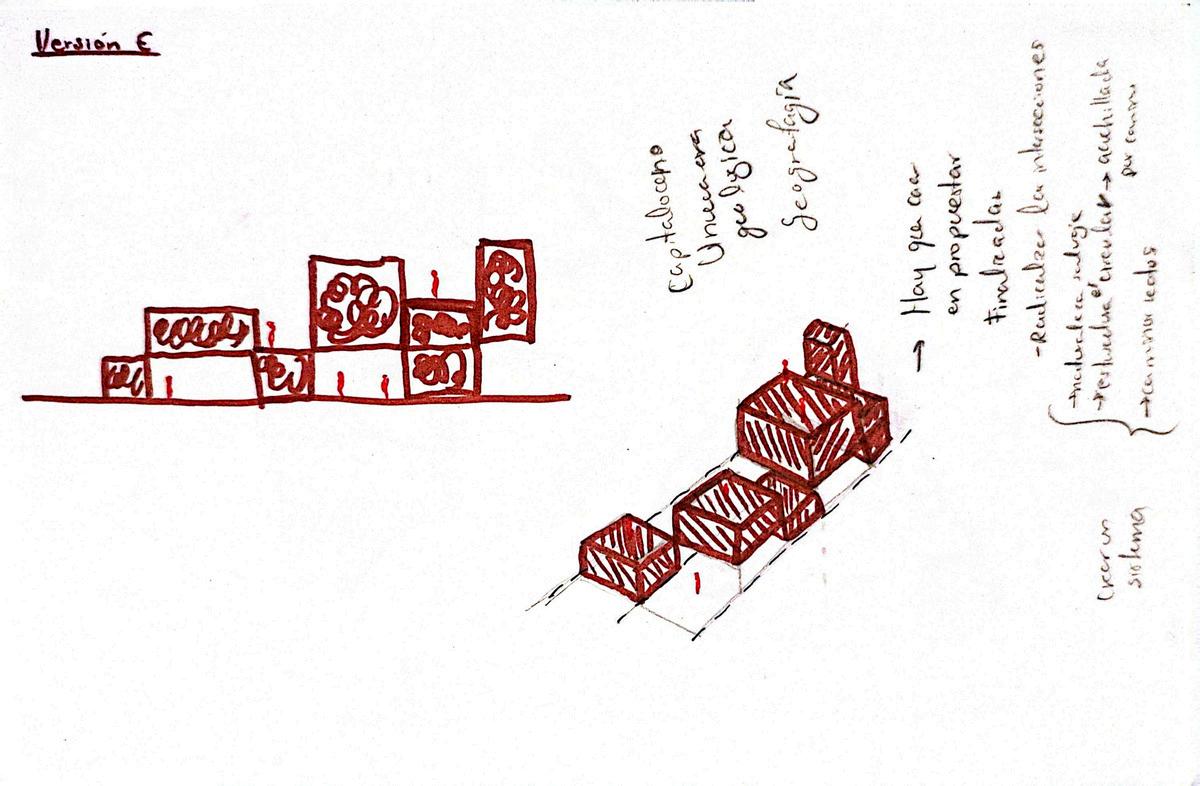 Versión E
Capitaloceno
Una nueva era
geológica
Geografagia
→ Hay que caer
en propuestas
Finalizadas
- Radicalizar las intersecciones
→ naturaleza salvaje
→ estructura circular → acuchillada
por caminos
→ caminos rectos
Crear un
sistema